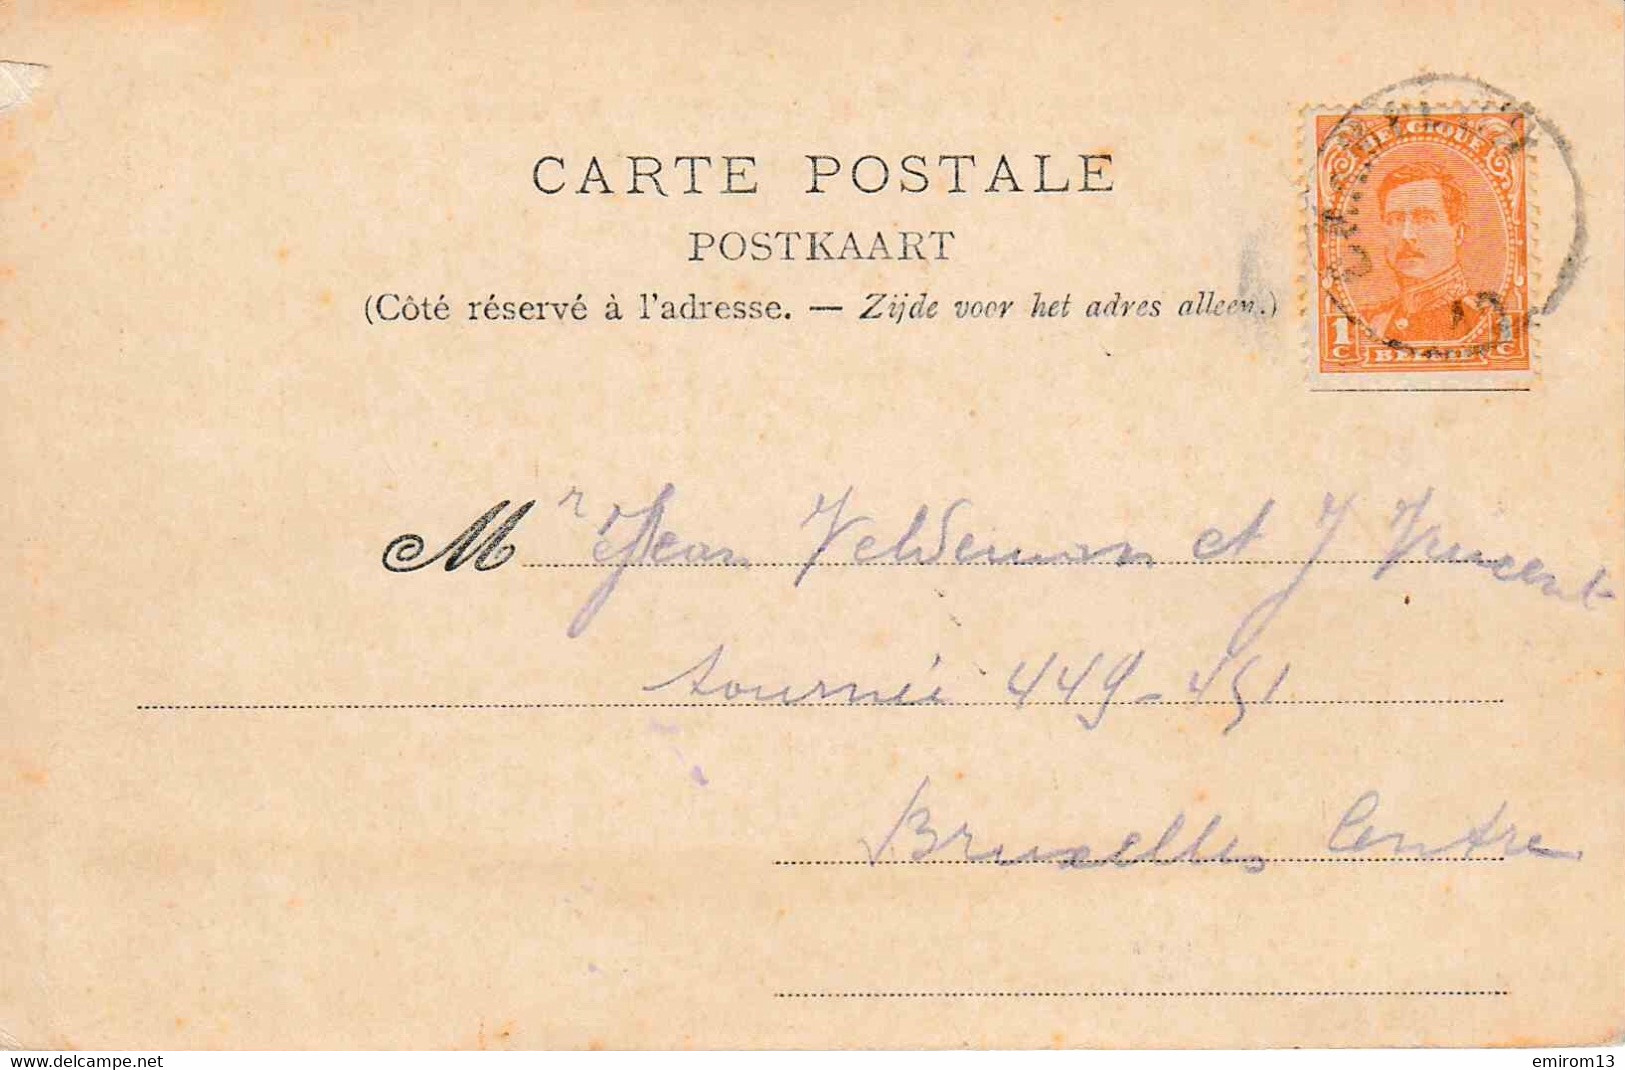 CARTE POSTALE
POSTKAART
(Côté réservé à l'adresse. — Zijde voor het adres alleen.)
BELGIQUE
1 C 1 C
BELGIE
Mr Jean Veldeman et J Vincent
tournée 449-451
Bruxelles Centre
delcampe.net
emirom13